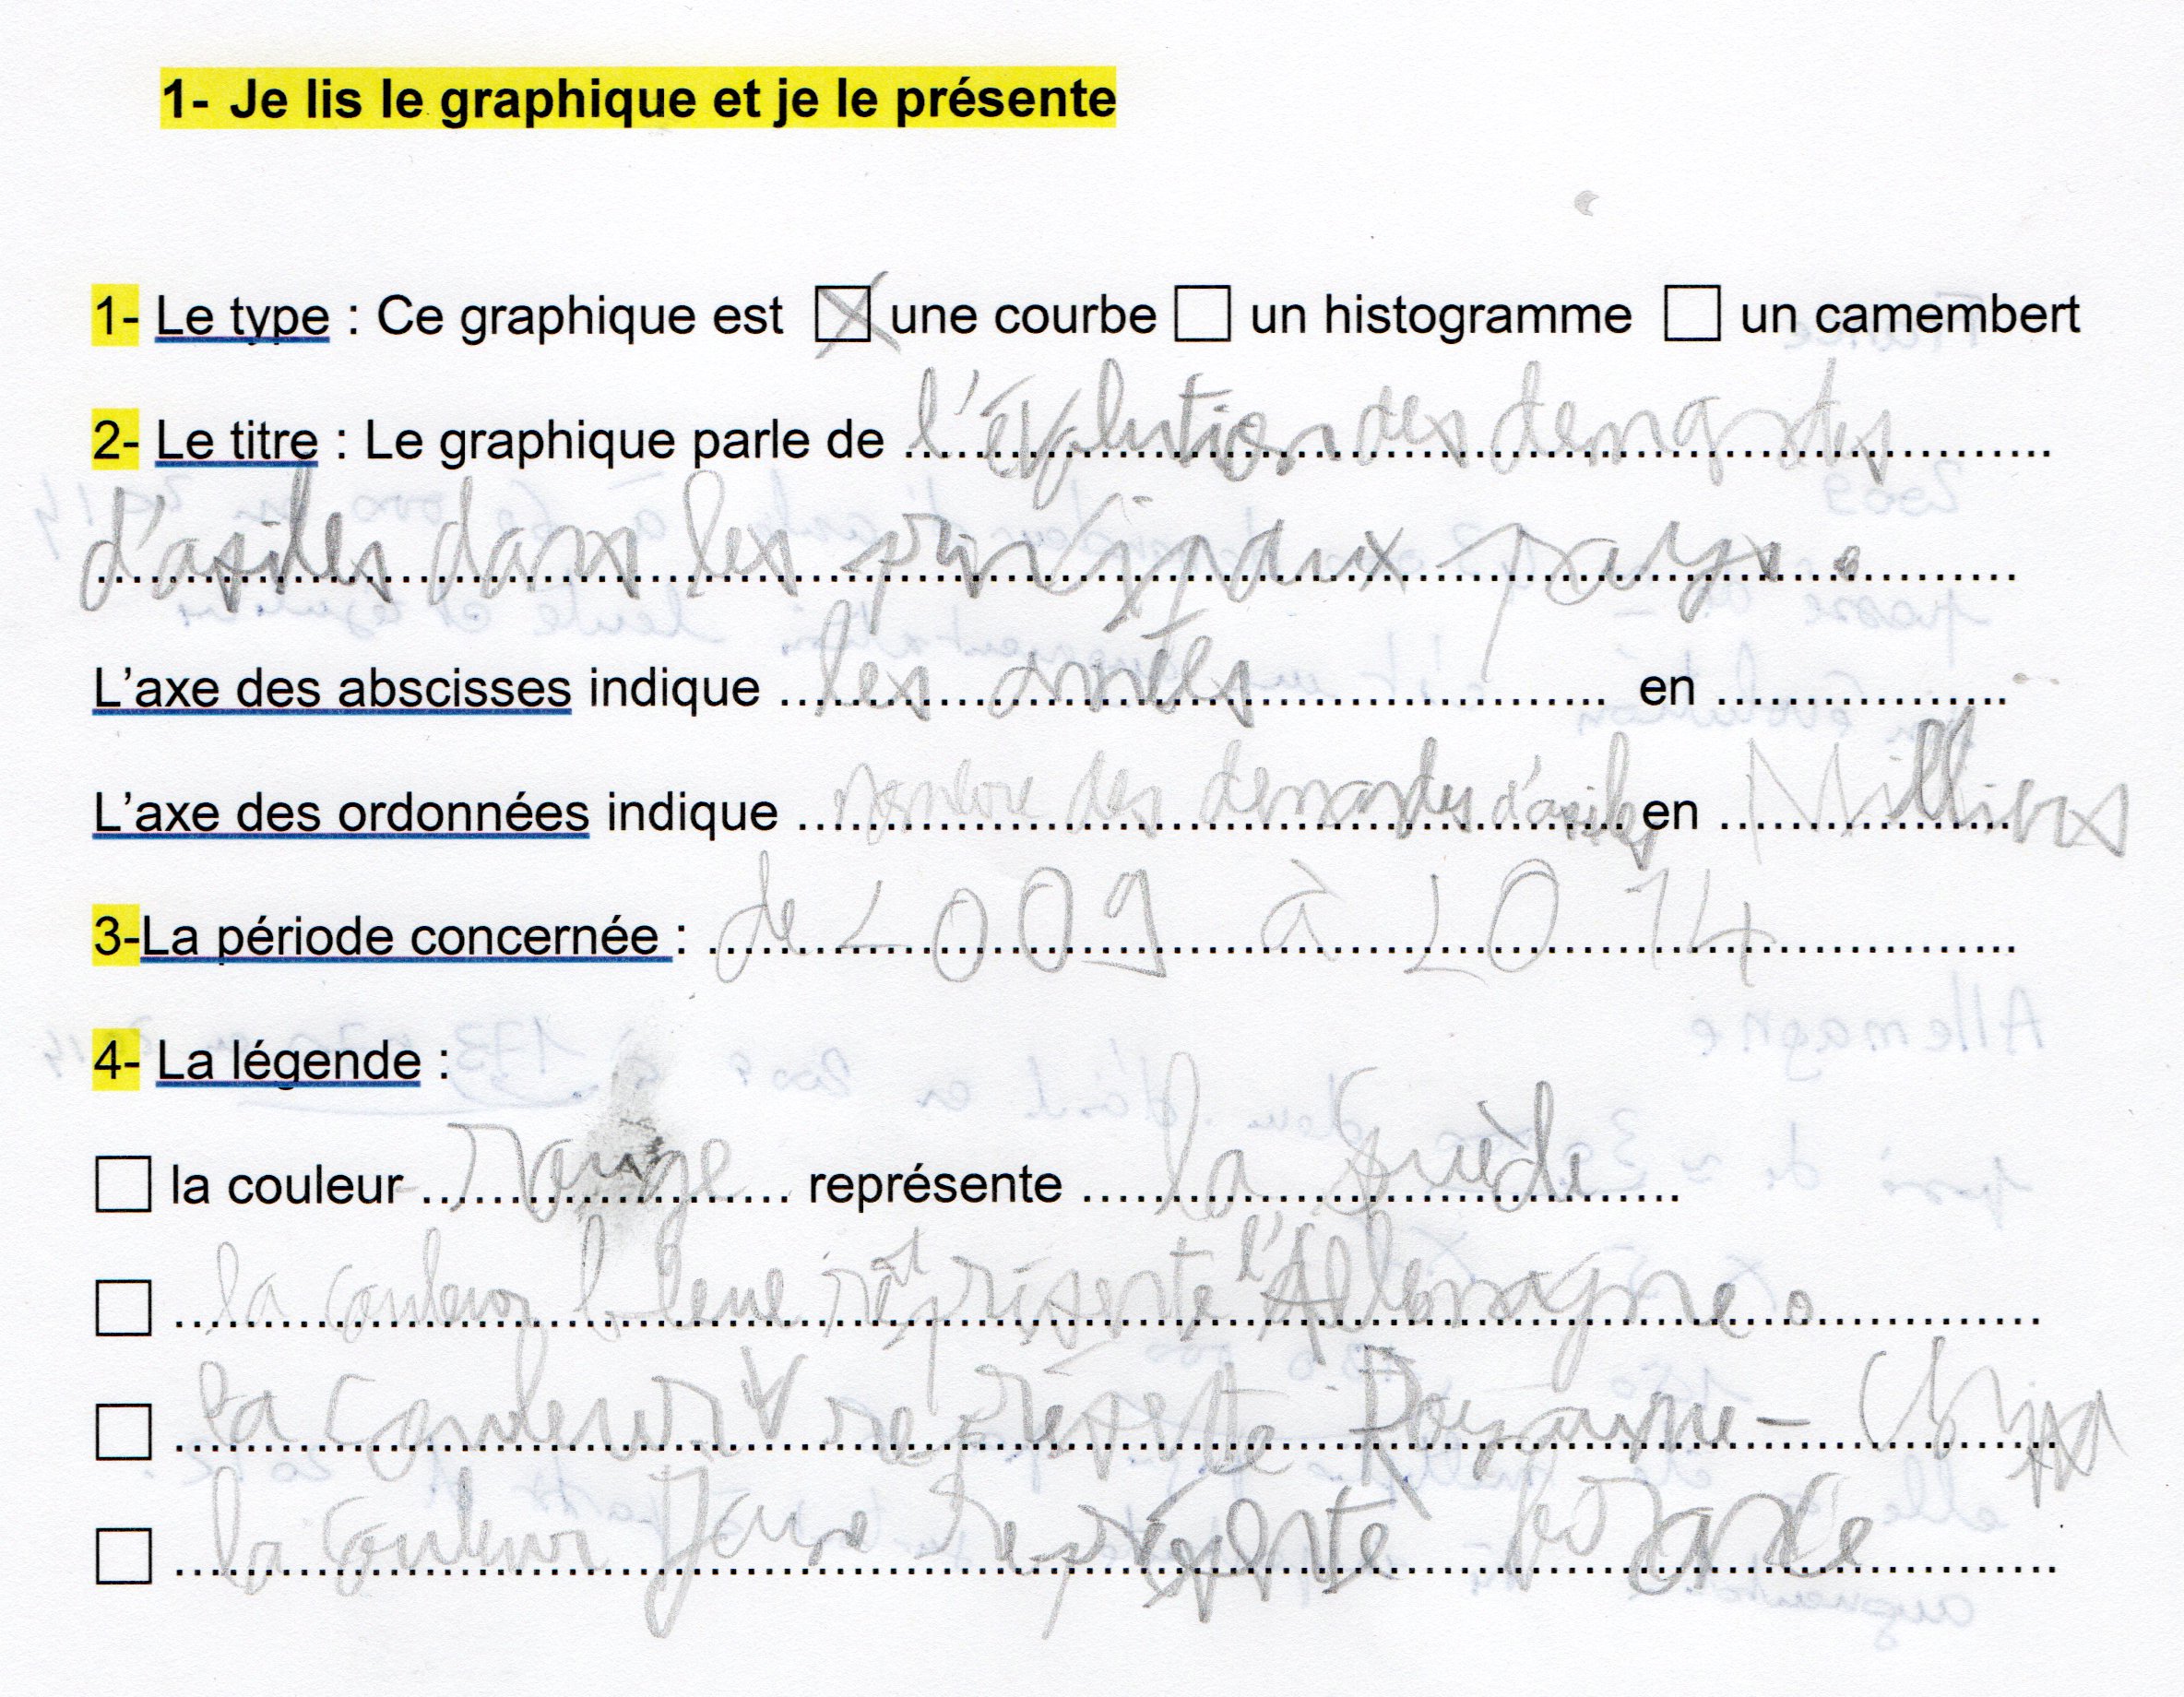 1- Je lis le graphique et je le présente
1- Le type : Ce graphique est ☒ une courbe ☐ un histogramme ☐ un camembert
2- Le titre : Le graphique parle de l'évolution des demandes
d'asiles dans les principaux pays.
L'axe des abscisses indique les années en
L'axe des ordonnées indique nombre des demandes d'asiles en Milliers
3-La période concernée : de 2009 à 2014
4- La légende :
☐ la couleur rouge représente la Suède
☐ la couleur bleue représente l'Allemagne.
☐ la couleur V représente Royaume-
☐ la couleur Jaune représente